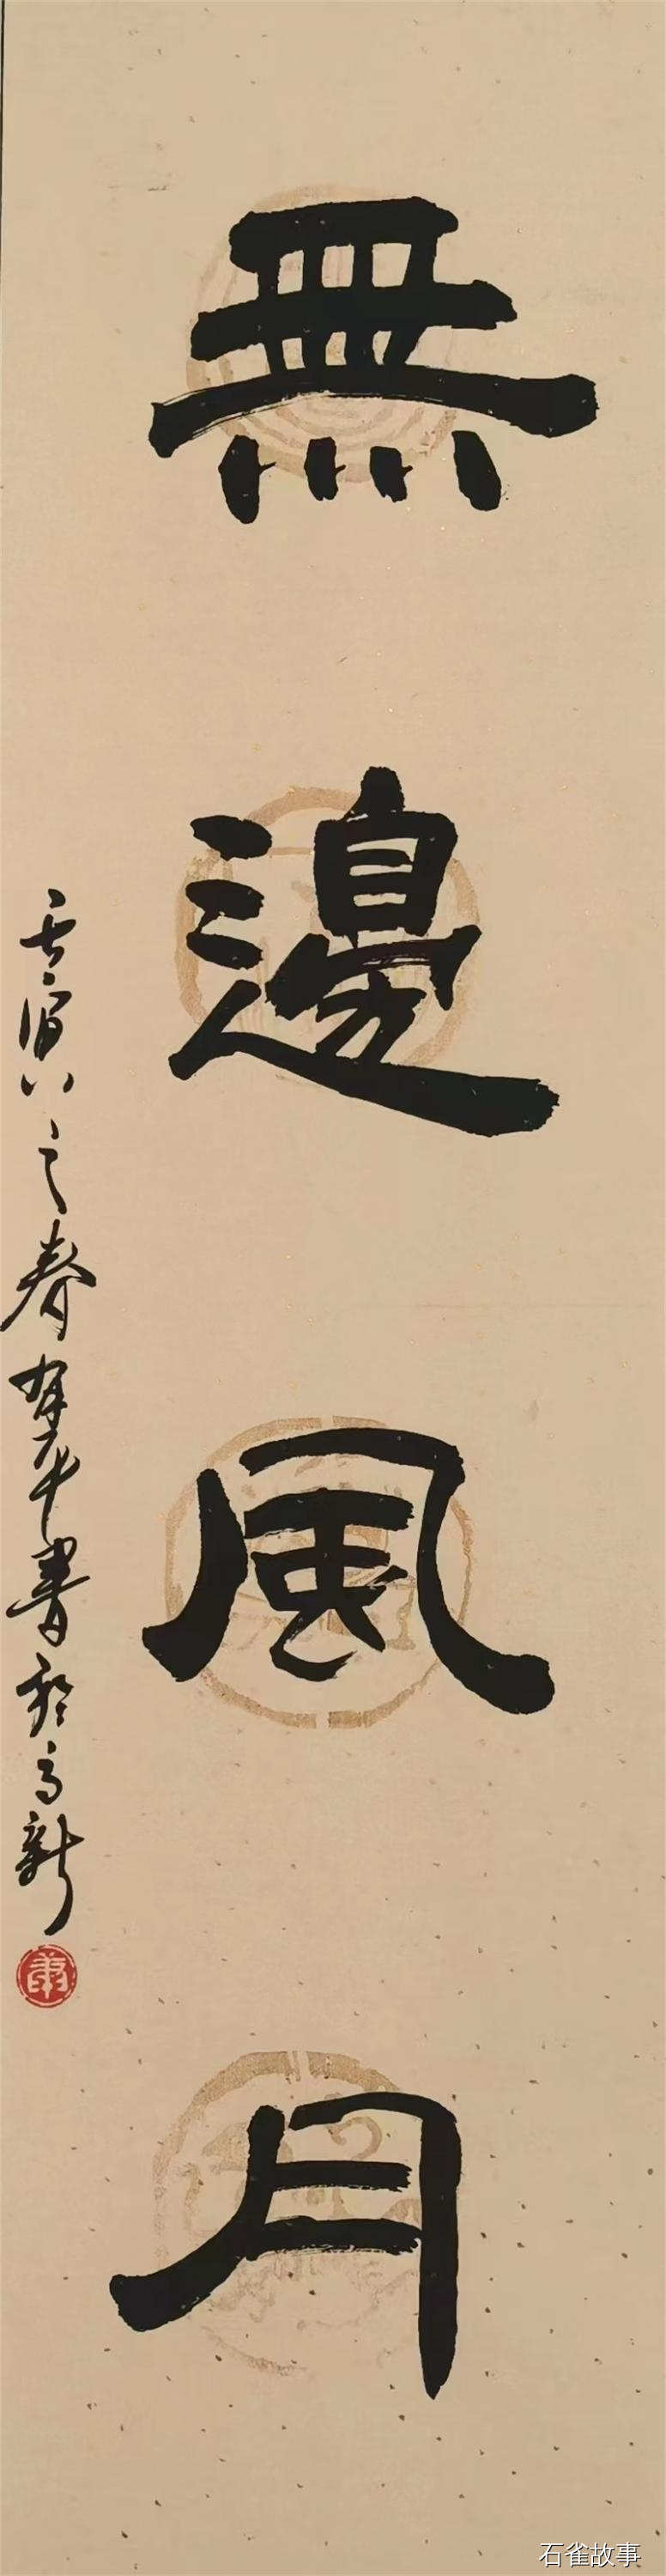 無邊風月
壬寅之春 書於高新
石雀故事